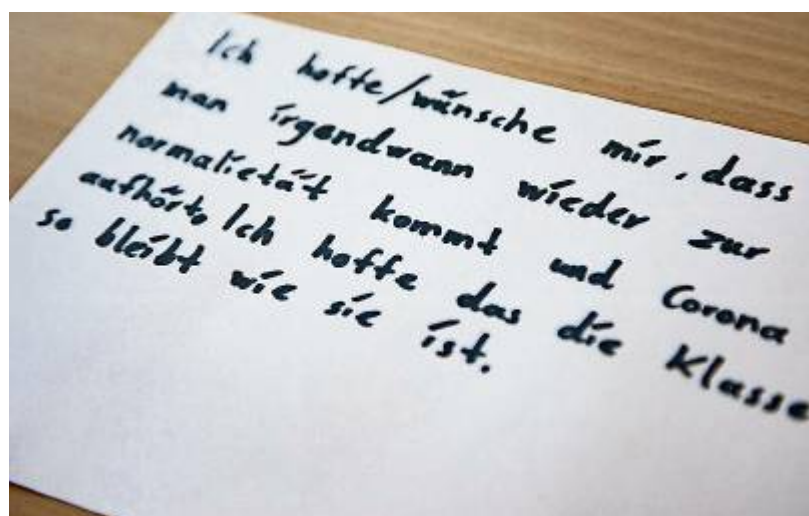 Ich hoffe/wünsche mir, dass
man irgendwann wieder zur
normalietät kommt und Corona
aufhört. Ich hoffe das die Klasse
so bleibt wie sie ist.